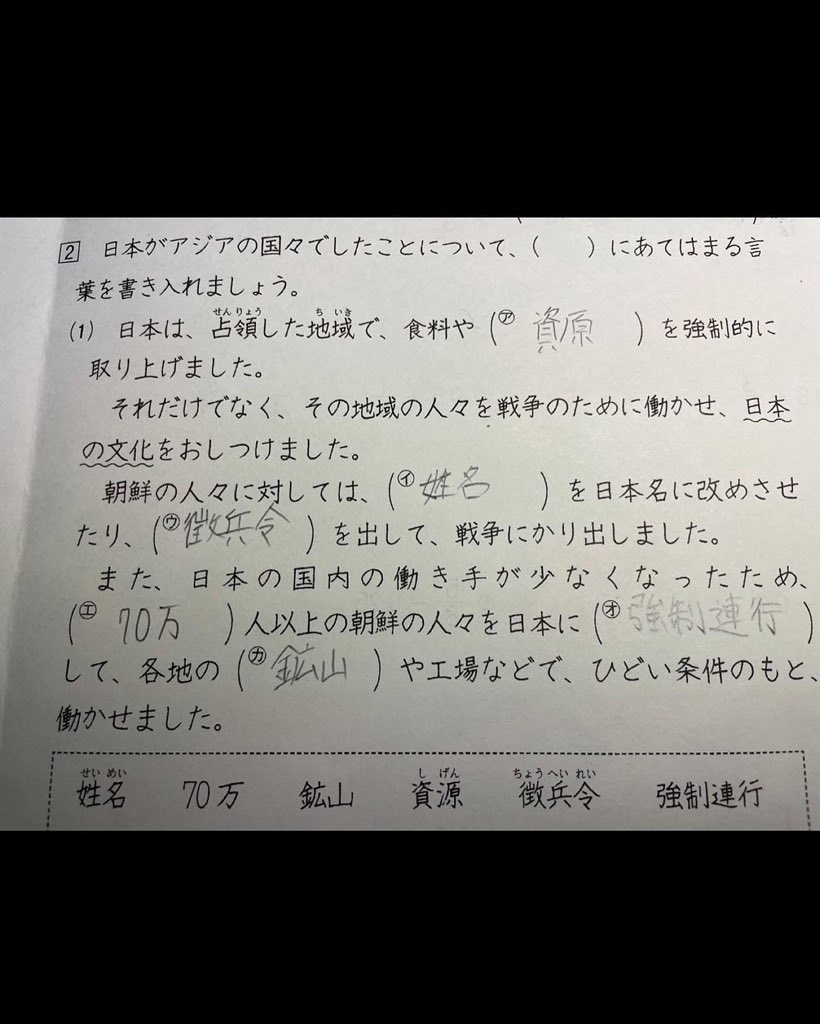 2 日本がアジアの国々でしたことについて、( )にあてはまる言
葉を書き入れましょう。
(1) 日本は、占領した地域で、食料や(ア 資原 )を強制的に
取り上げました。
それだけでなく、その地域の人々を戦争のために働かせ、日本
の文化をおしつけました。
朝鮮の人々に対しては、(イ 姓名 )を日本名に改めさせ
たり、(ウ 徴兵令 )を出して、戦争にかり出しました。
また、日本の国内の働き手が少なくなったため、
(エ 70万 )人以上の朝鮮の人々を日本に(オ 強制連行 )
して、各地の(カ 鉱山 )や工場などで、ひどい条件のもと、
働かせました。
姓名 70万 鉱山 資源 徴兵令 強制連行